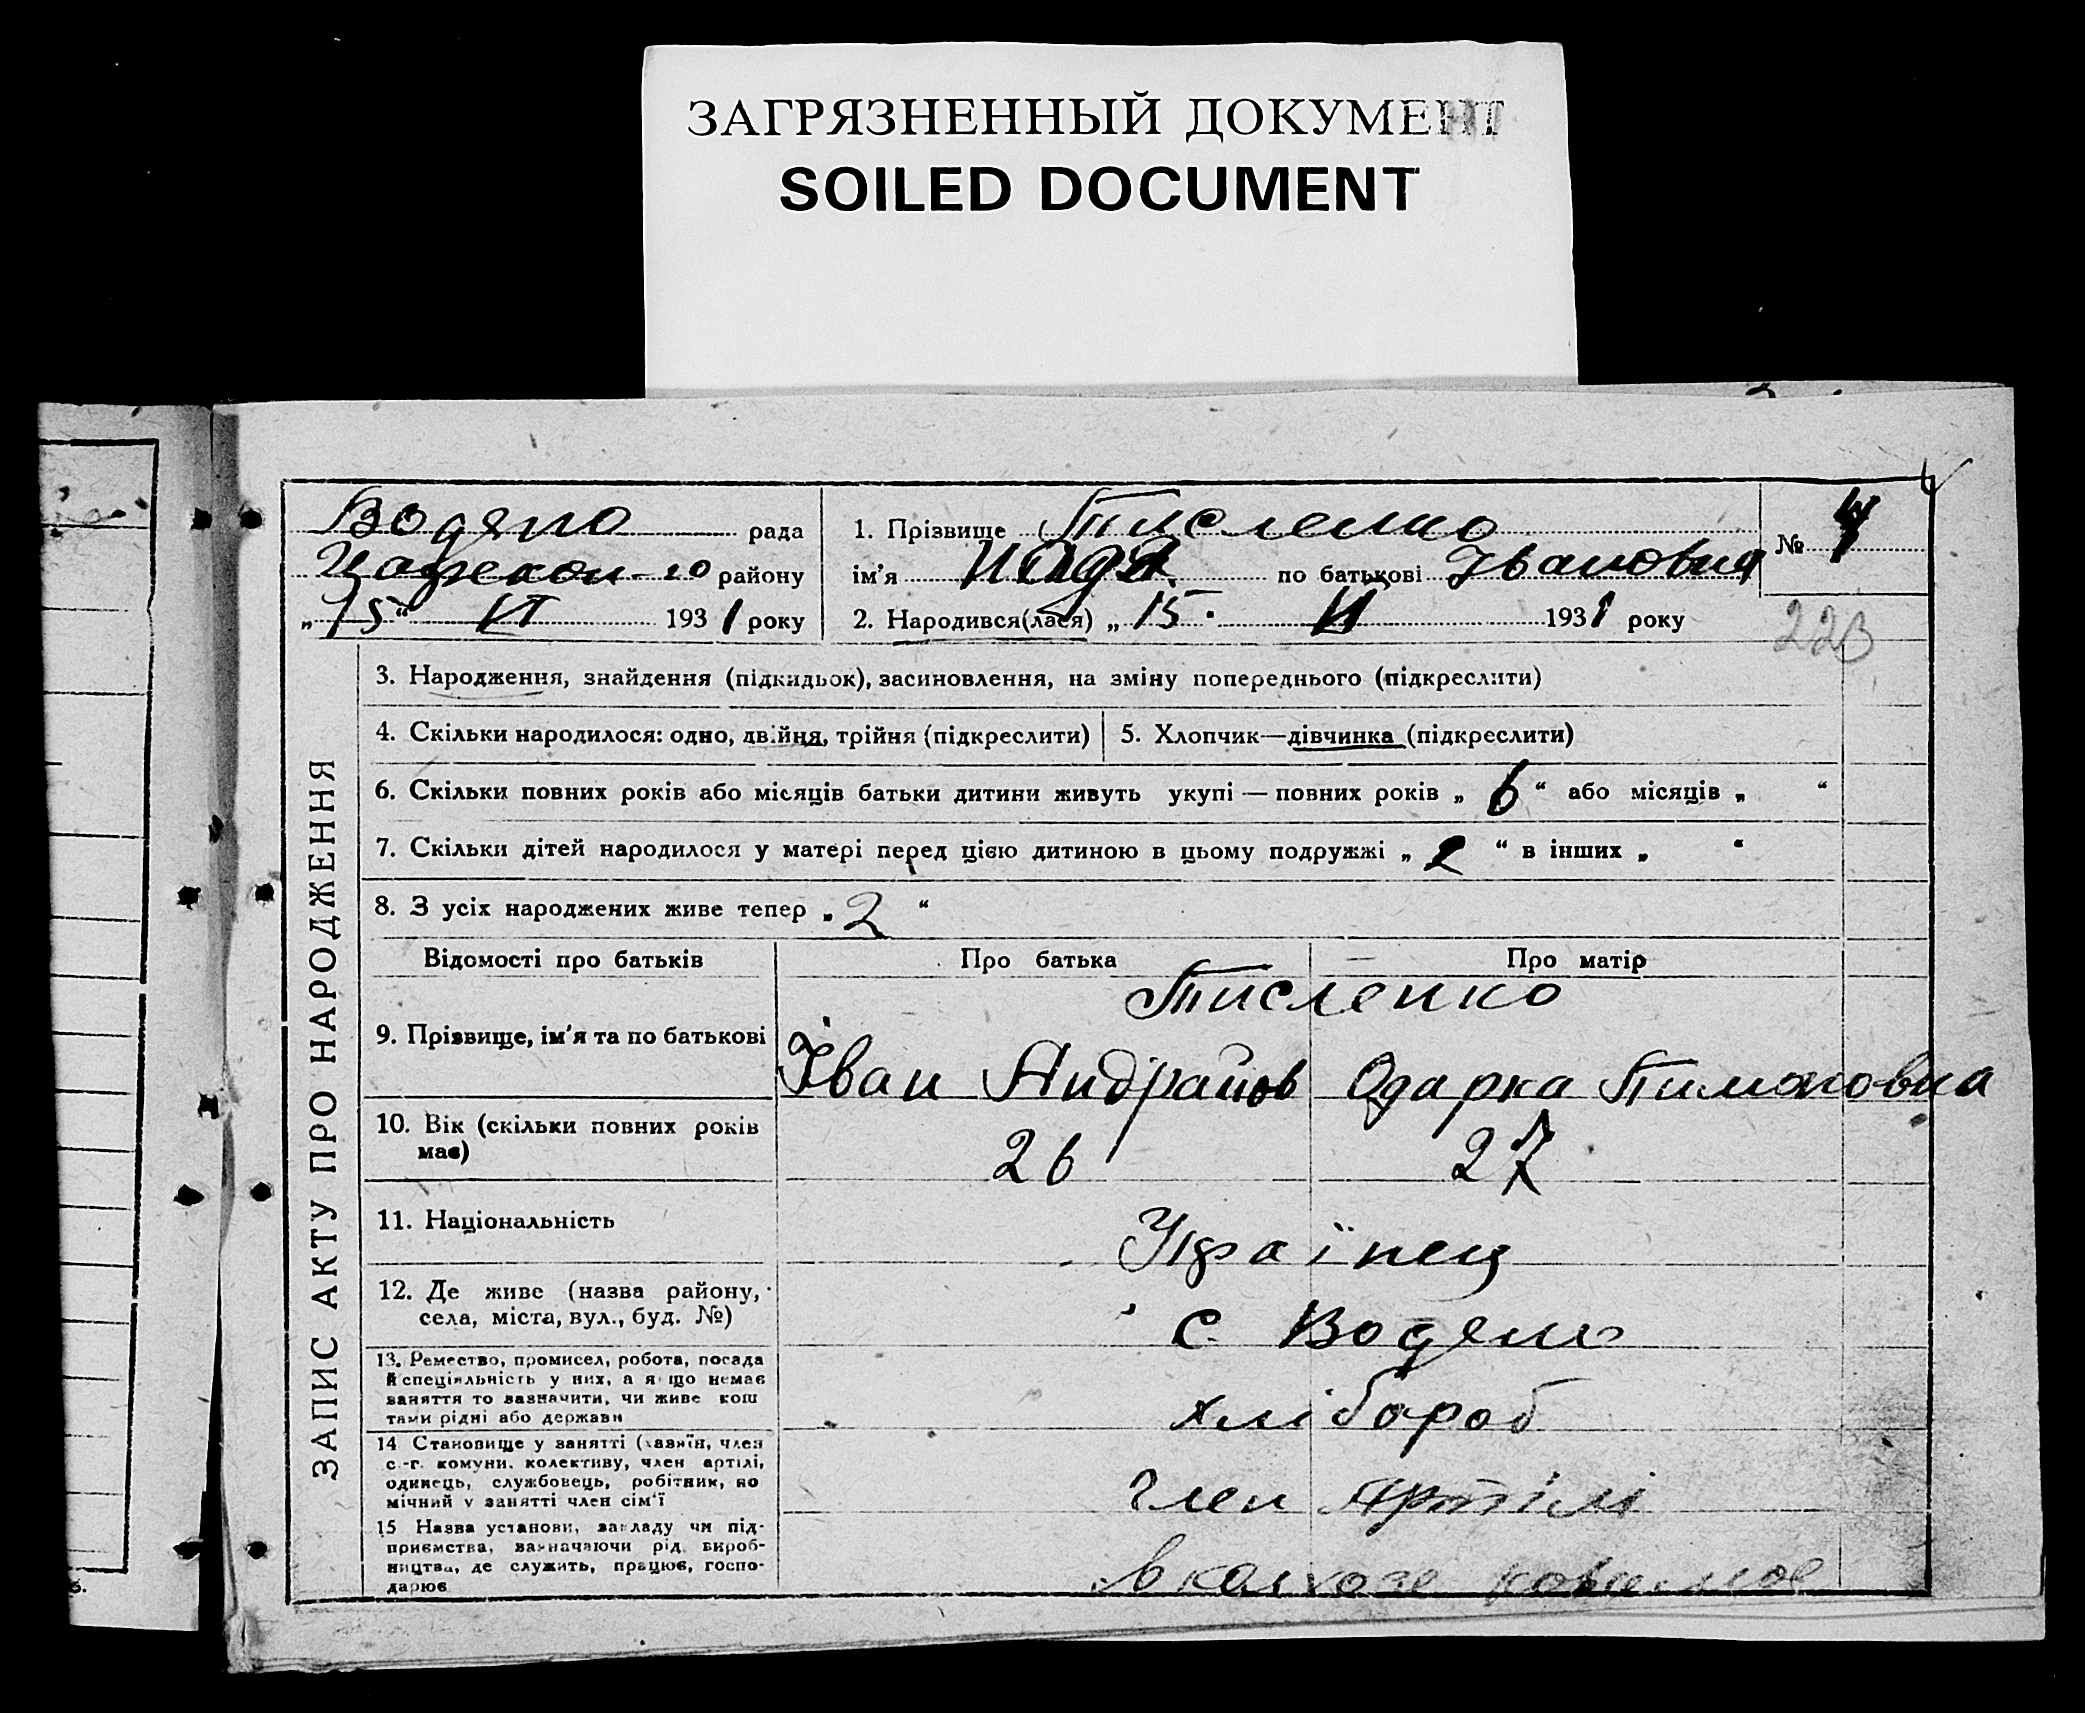 ЗАГРЯЗНЕННЫЙ ДОКУМЕНТ
SOILED DOCUMENT
Водяно рада
району
„15“ VI 1931 року
1. Прізвище Тисленко
ім'я Надя по батькові Івановна
2. Народився(лася) „15. VI 1931 року
№
223
ЗАПИС АКТУ ПРО НАРОДЖЕННЯ
3. Народження, знайдення (підкидьок), засиновлення, на зміну попереднього (підкреслити)
4. Скільки народилося: одно, двійня, трійня (підкреслити)
5. Хлопчик—дівчинка (підкреслити)
6. Скільки повних років або місяців батьки дитини живуть укупі — повних років „6“ або місяців „ “
7. Скільки дітей народилося у матері перед цією дитиною в цьому подружжі „2“ в інших „ “
8. З усіх народжених живе тепер „2“
Відомості про батьків Про батька Про матір
Тисленко
9. Прізвище, ім'я та по батькові Іван Одарка
10. Вік (скільки повних років 26 27
має)
11. Національність Українец
12. Де живе (назва району,
села, міста, вул., буд. №) с. Водяно
13. Ремество, промисел, робота, посада
й спеціяльність у них, а якщо немає
заняття то зазначити, чи живе кош
тами рідні або держави
хлібороб
14 Становище у занятті (хазяїн, член
с.-г. комуни, колективу, член артілі,
одинець, службовець, робітник, по
мічний у занятті член сім'ї
член Артілі
15 Назва установи, закладу чи під-
приємства, зазначаючи рід вироб-
ництва, де служить, працює, госпо-
дарює
в колхозе